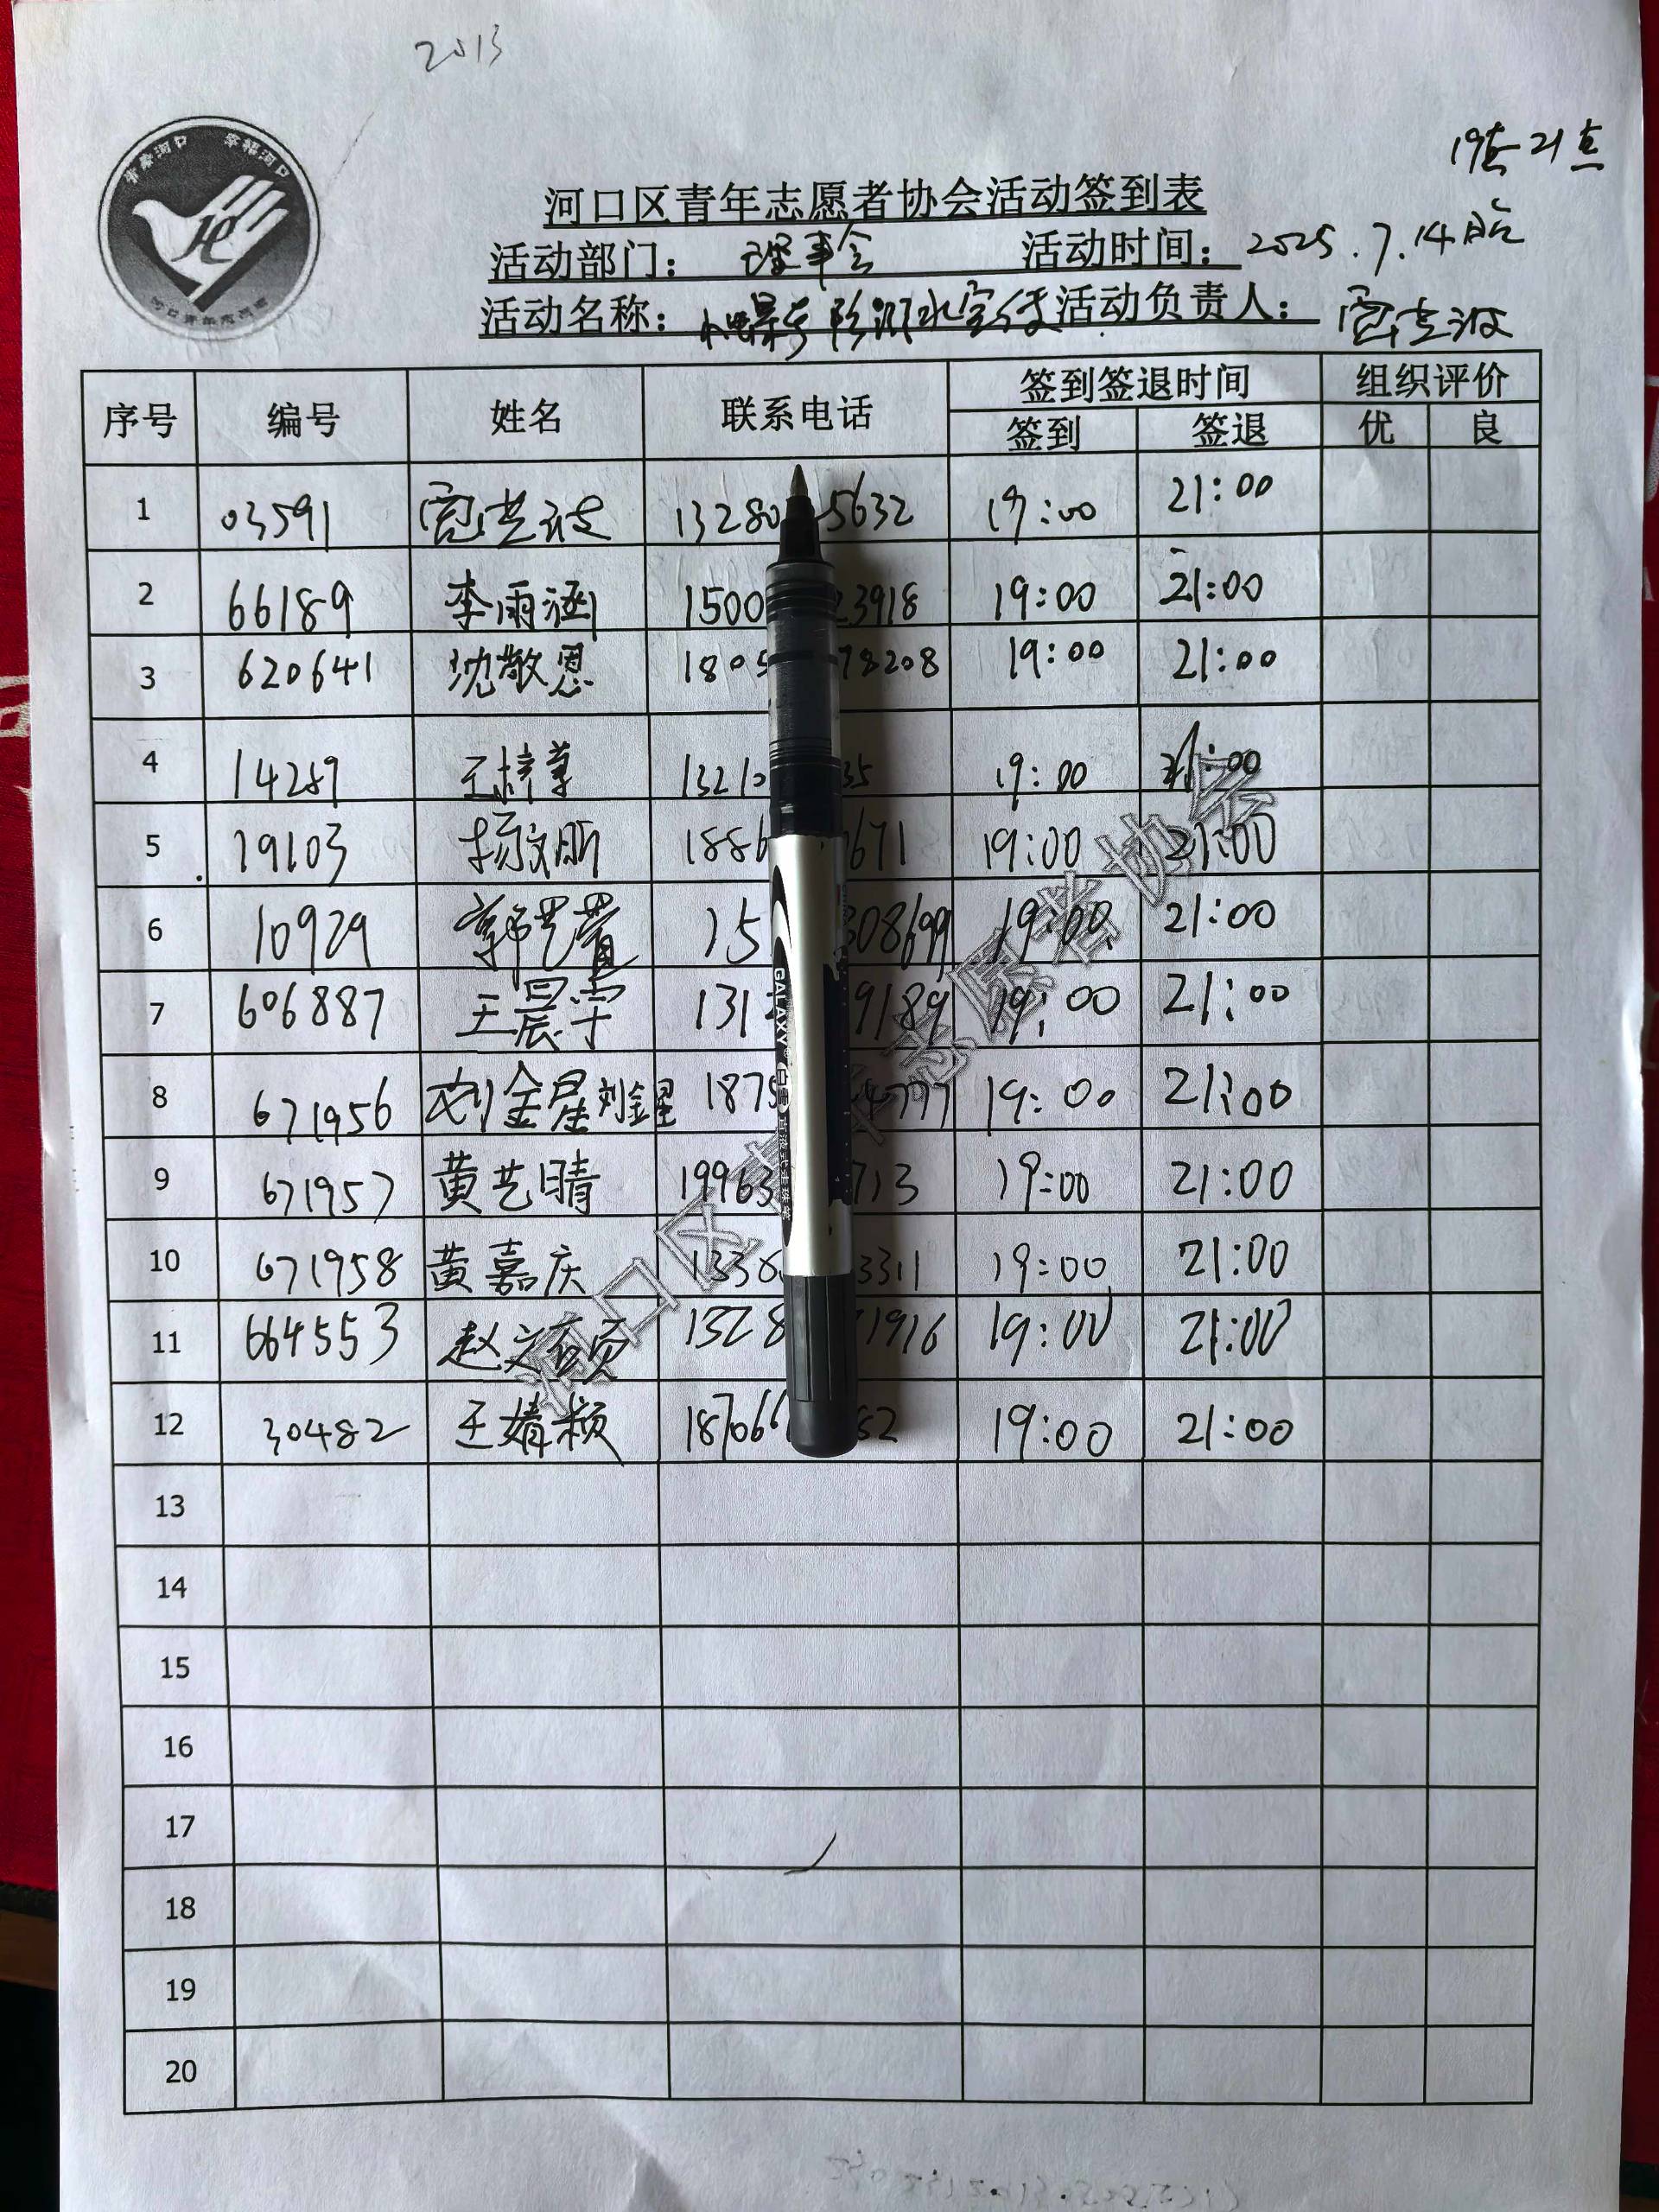 2013
19点-21点
河口区青年志愿者协会活动签到表
活动部门： 理事会 活动时间：2025.7.14
活动名称： 防溺水宣传 活动负责人：
序号 编号 姓名 联系电话 签到签退时间 组织评价
签到 签退 优 良
1 03591 13280 5632 19:00 21:00
2 66189 李雨涵 1500 23918 19:00 21:00
3 620641 沈敬恩 1805 78208 19:00 21:00
4 14289 王梓萱 13210 35 19:00 21:00
5 19103 杨文昕 1886 671 19:00 21:00
6 10929 郭艺萱 15 308699 19:00 21:00
7 606887 王晨宇 131 9189 19:00 21:00
8 671956 刘金星 刘金星 1875 4777 19:00 21:00
9 671957 黄艺晴 19963 713 19:00 21:00
10 671958 黄嘉庆 1338 3311 19:00 21:00
11 664553 赵文硕 1328 71916 19:00 21:00
12 30482 王婧颖 187066 82 19:00 21:00
13
14
15
16
17
18
19
20
GALAXY
河口区青年志愿者协会